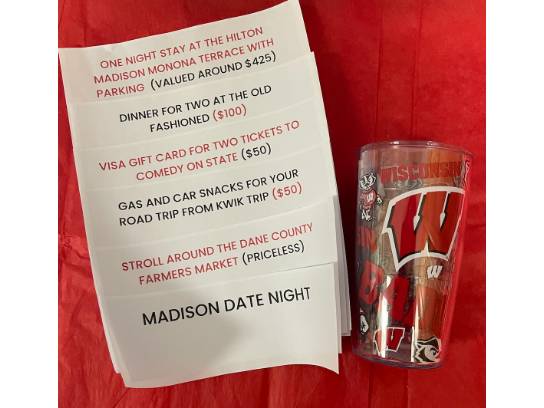 ONE NIGHT STAY AT THE HILTON
MADISON MONONA TERRACE WITH
PARKING (VALUED AROUND $425)
DINNER FOR TWO AT THE OLD
FASHIONED ($100)
VISA GIFT CARD FOR TWO TICKETS TO
COMEDY ON STATE ($50)
GAS AND CAR SNACKS FOR YOUR
ROAD TRIP FROM KWIK TRIP ($50)
STROLL AROUND THE DANE COUNTY
FARMERS MARKET (PRICELESS)
MADISON DATE NIGHT
WISCONSIN
W
W
W